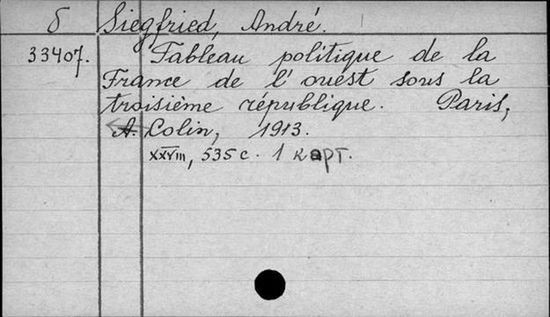 δ Siegfried, André.
33407. Tableau politique de la
France de l'ouest sous la
troisième république. Paris,
A. Colin, 1913.
XXVIII, 535 с. 1 карт.